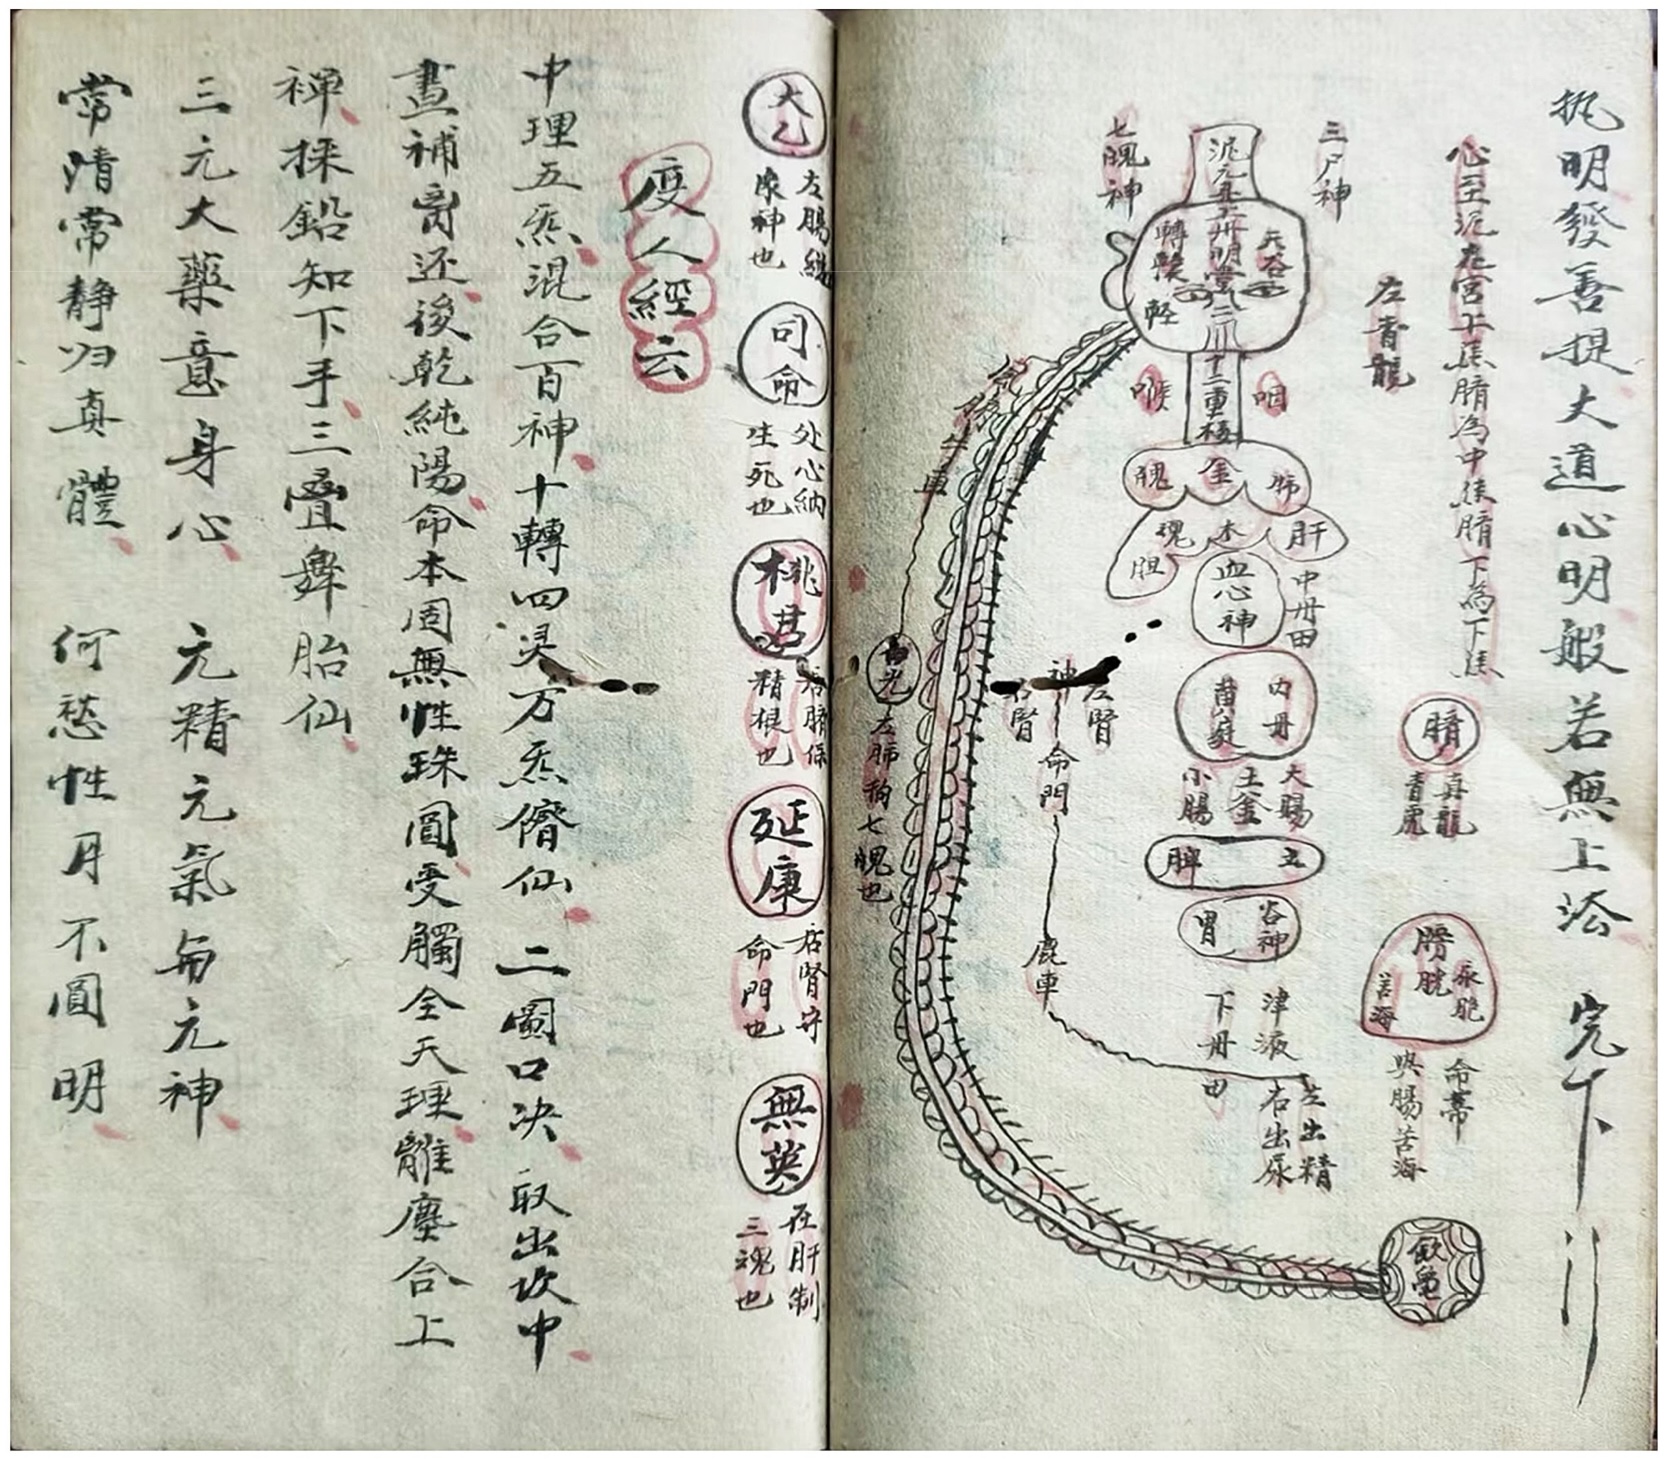 明發善提大道心明般若無上
完
心至泥丸宮上焦臍為中焦臍下為下焦
左青龍
臍
真龍
青虎
膀胱
尿胞
苦海
命蒂
與腸苦海
三尸神
七魄神
泥元
明堂
元谷
十二重樓
咽
喉
肺
金
魄
肝
木
魂
胆
血心神
中丹田
內丹
黃庭
大腸
土釜
小腸
脾
土
谷神
胃
津液
下丹田
左出精
右出尿
左腎
神
右腎
命門
鹿車
牛車
左肺拘七魄也
無英
在肝制
三魂也
延康
右腎守
命門也
桃君
精根也
司命
处心納
生死也
大乙
左腦總
衆神也
度人經云
中理五炁混合百神十轉四灵万炁儕仙 二圖口决 取出坎中
畫補离还後乾純陽命本固無性珠圓受觸全天理離塵合上
禅採鉛知下手三疊舞胎仙
三元大藥意身心 元精元氣与元神
常惰常静归真體 何愁性月不圓明